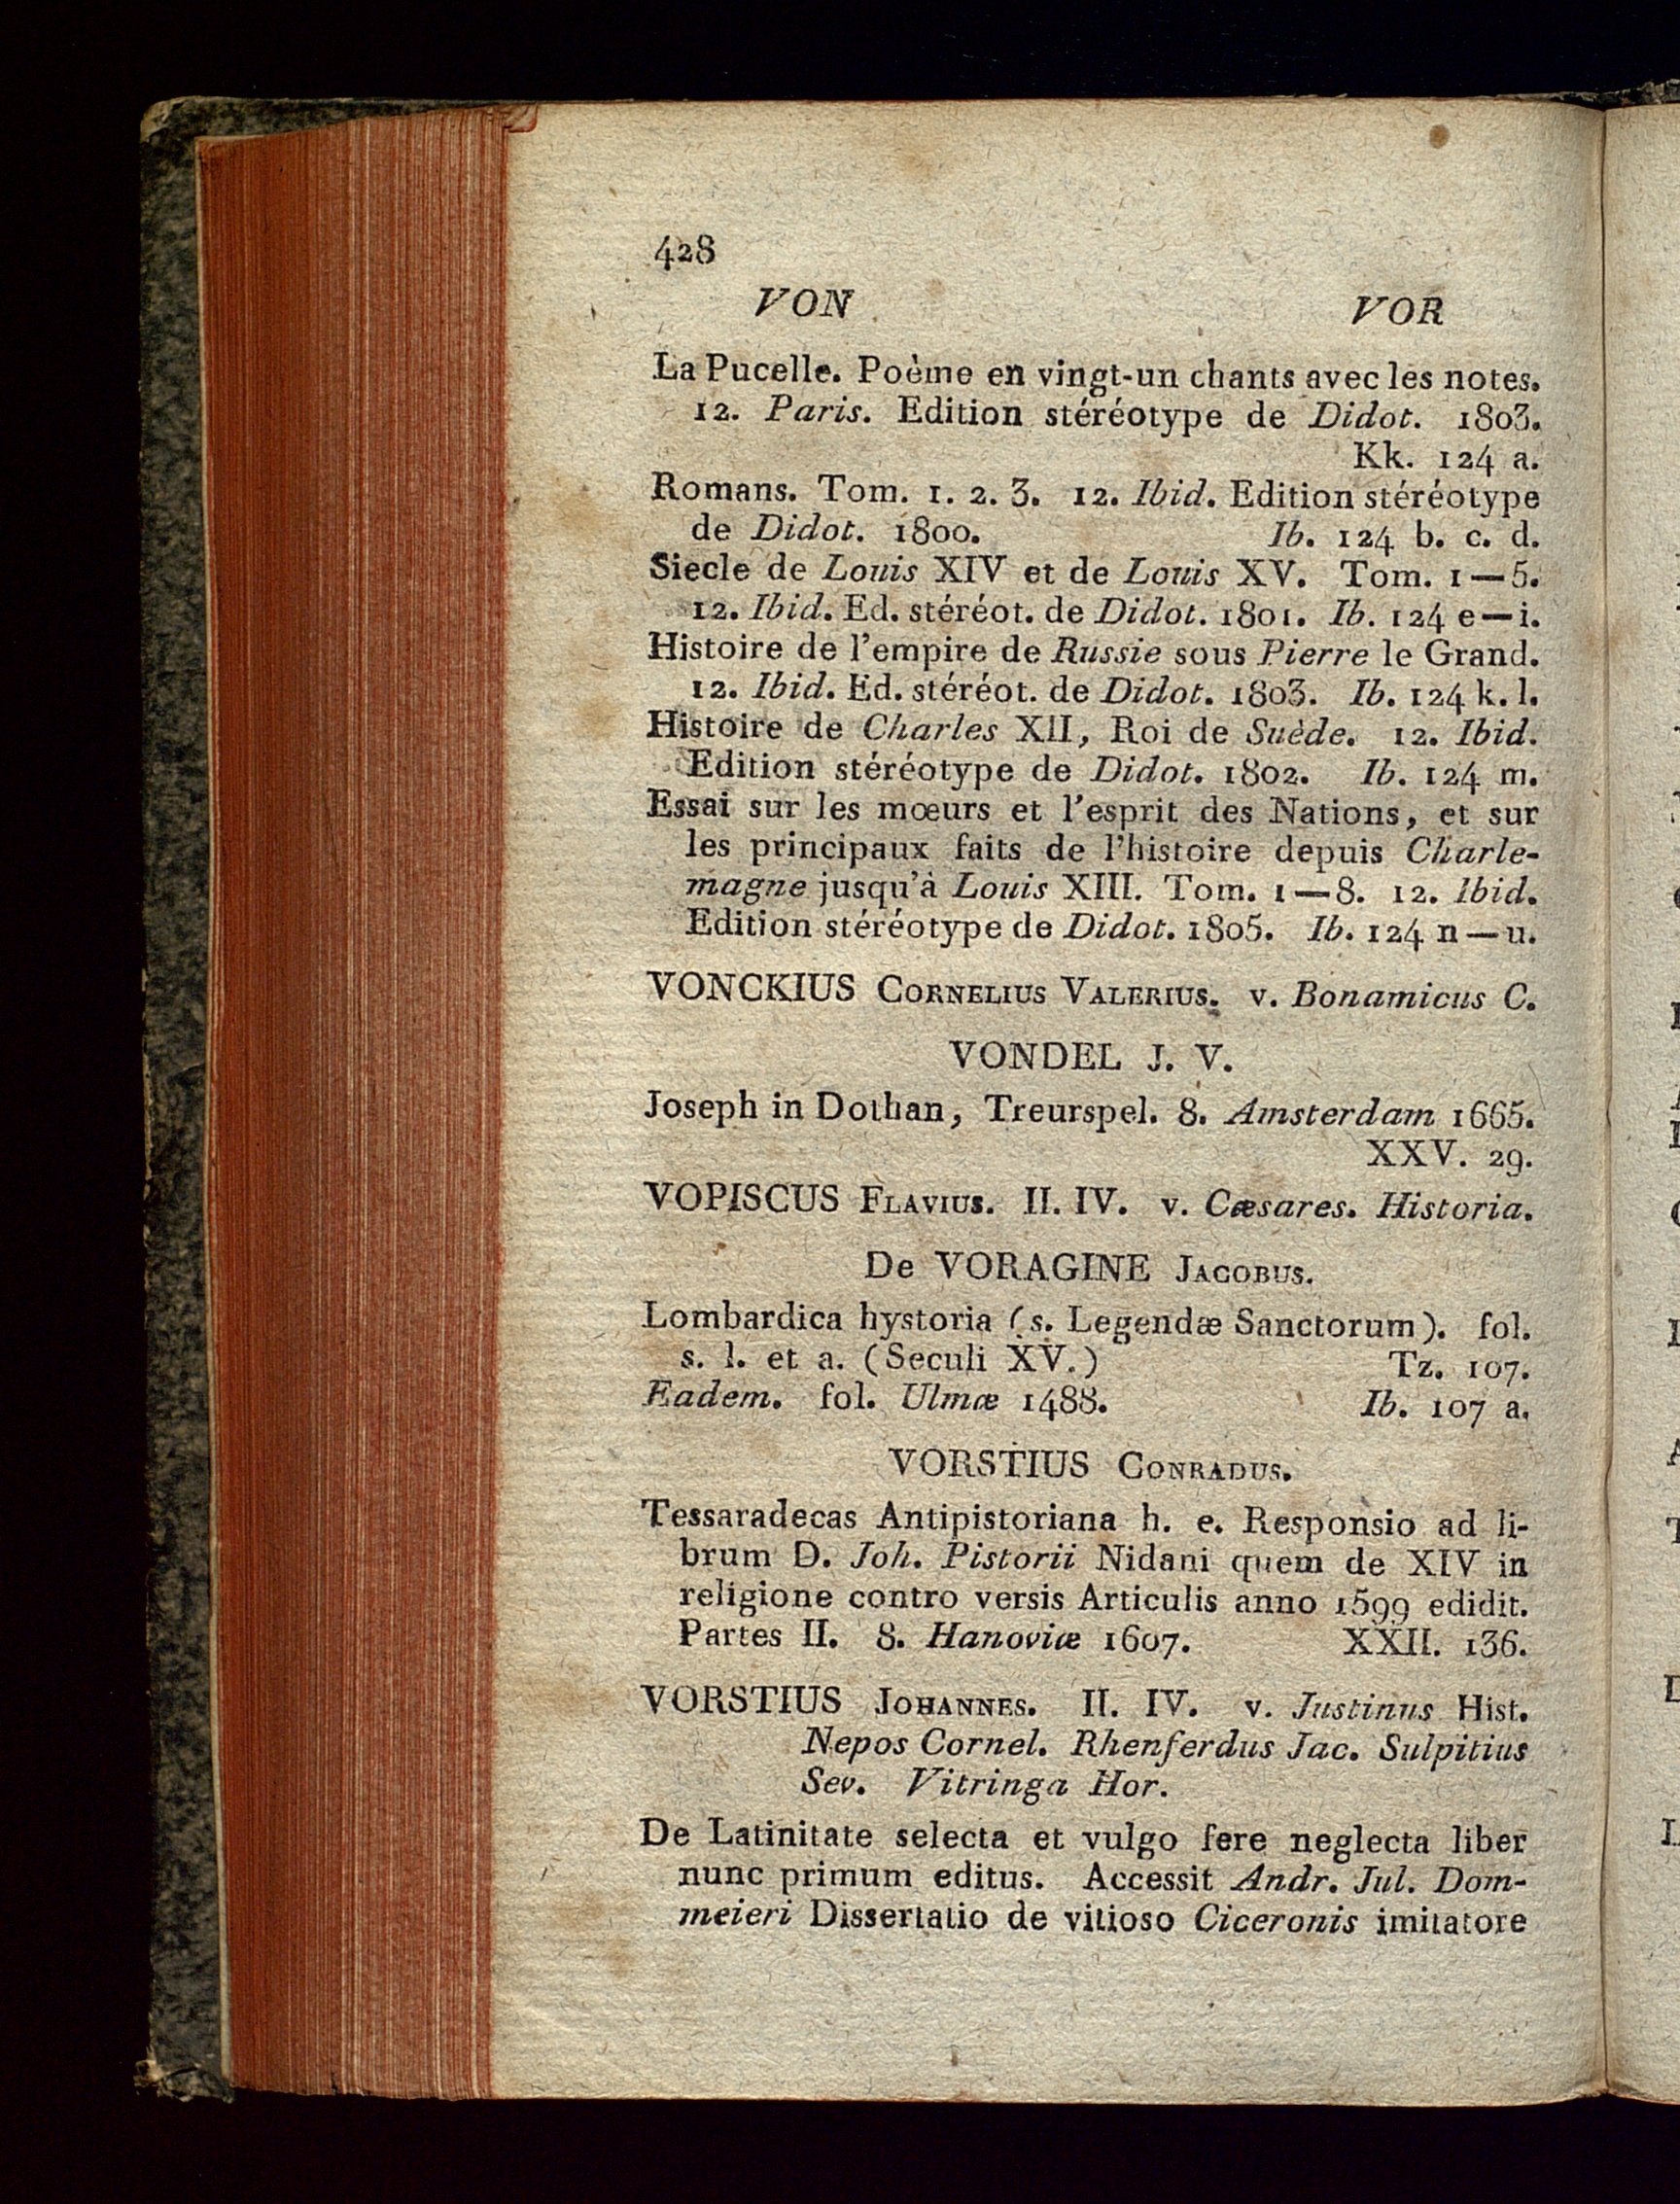 428
VON VOR
La Pucelle. Poème en vingt-un chants avec les notes.
12. Paris. Edition stéréotype de Didot. 1803.
Kk. 124 a.
Romans. Tom. 1. 2. 3. 12. Ibid. Edition stéréotype
de Didot. 1800. Ib. 124 b. c. d.
Siecle de Louis XIV et de Louis XV. Tom. 1—5.
12. Ibid. Ed. stéréot. de Didot. 1801. Ib. 124 e—i.
Histoire de l'empire de Russie sous Pierre le Grand.
12. Ibid. Ed. stéréot. de Didot. 1803. Ib. 124 k. l.
Histoire de Charles XII, Roi de Suède. 12. Ibid.
Edition stéréotype de Didot. 1802. Ib. 124 m.
Essai sur les mœurs et l'esprit des Nations, et sur
les principaux faits de l'histoire depuis Charle-
magne jusqu'à Louis XIII. Tom. 1—8. 12. Ibid.
Edition stéréotype de Didot. 1805. Ib. 124 n—u.
VONCKIUS CORNELIUS VALERIUS. v. Bonamicus C.
VONDEL J. V.
Joseph in Dothan, Treurspel. 8. Amsterdam 1665.
XXV. 29.
VOPISCUS FLAVIUS. II. IV. v. Cæsares. Historia.
De VORAGINE JACOBUS.
Lombardica hystoria (s. Legendæ Sanctorum). fol.
s. l. et a. (Seculi XV.) Tz. 107.
Eadem. fol. Ulmæ 1488. Ib. 107 a.
VORSTIUS CONRADUS.
Tessaradecas Antipistoriana h. e. Responsio ad li-
brum D. Joh. Pistorii Nidani quem de XIV in
religione contro versis Articulis anno 1599 edidit.
Partes II. 8. Hanoviæ 1607. XXII. 136.
VORSTIUS JOHANNES. II. IV. v. Justinus Hist.
Nepos Cornel. Rhenferdus Jac. Sulpitius
Sev. Vitringa Hor.
De Latinitate selecta et vulgo fere neglecta liber
nunc primum editus. Accessit Andr. Jul. Dom-
meieri Dissertatio de vitioso Ciceronis imitatore